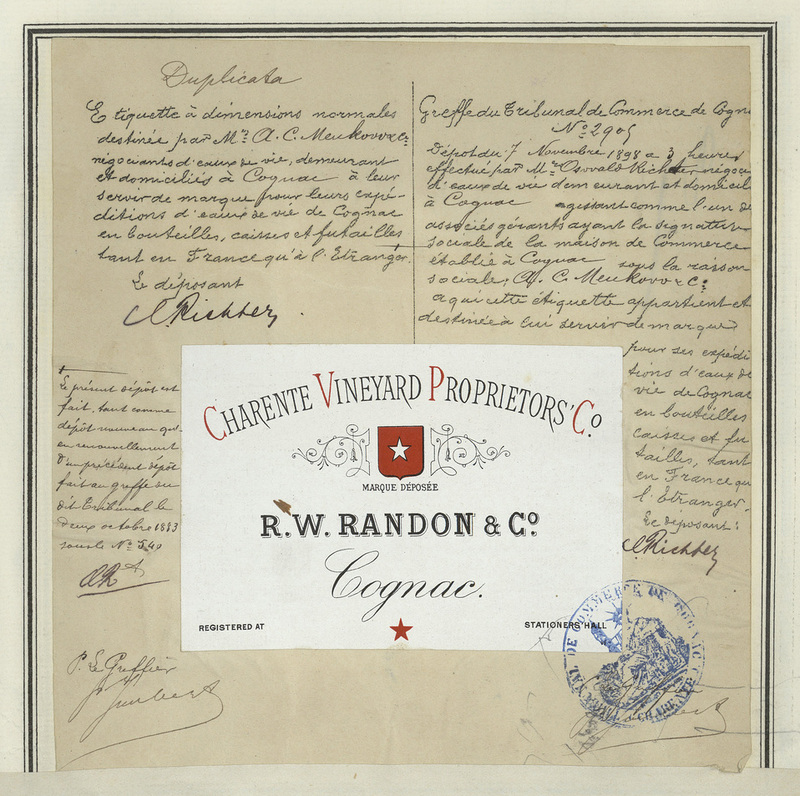 Duplicata
Etiquette à dimensions normales
destinée par Mrs A. C. Meukow & Cie
négociants d'eaux de vie, demeurant
et domiciliés à Cognac à leur
servir de marque pour leurs expé-
ditions d'eaux de vie de Cognac
en bouteilles, caisses et futailles
tant en France qu'à l'Etranger.
Le déposant
Richter
Le présent dépôt est
fait, tant comme
dépôt nouveau qu'
en renouvellement
d'un précédent dépôt
fait au greffe du
dit Tribunal le
deux octobre 1883
sous le No 540
P. Le Greffier
Greffe du Tribunal de Commerce de Cogn
No 2905
Dépôt du 7 Novembre 1898 à 3 heures
effectué par Mr Oswald Richter négoci
d'eaux de vie demeurant et domicil
à Cognac agissant comme l'un de
associés gérants ayant la signature
sociale de la maison de Commerce
établie à Cognac sous la raison
sociale; A. C. Meukow & Co
a qui cette étiquette appartient et
destinée à lui servir de marque
pour ses expédi
tions d'eaux de
vie de Cognac
en bouteilles
caisses et fu
tailles, tant
en France qu'
l'Etranger.
Le déposant:
Richter
CHARENTE VINEYARD PROPRIETORS' Co
MARQUE DÉPOSÉE
R.W. RANDON & Co.
Cognac.
REGISTERED AT
STATIONERS' HALL
DE COMMERCE DE COGNAC
CHARENTE